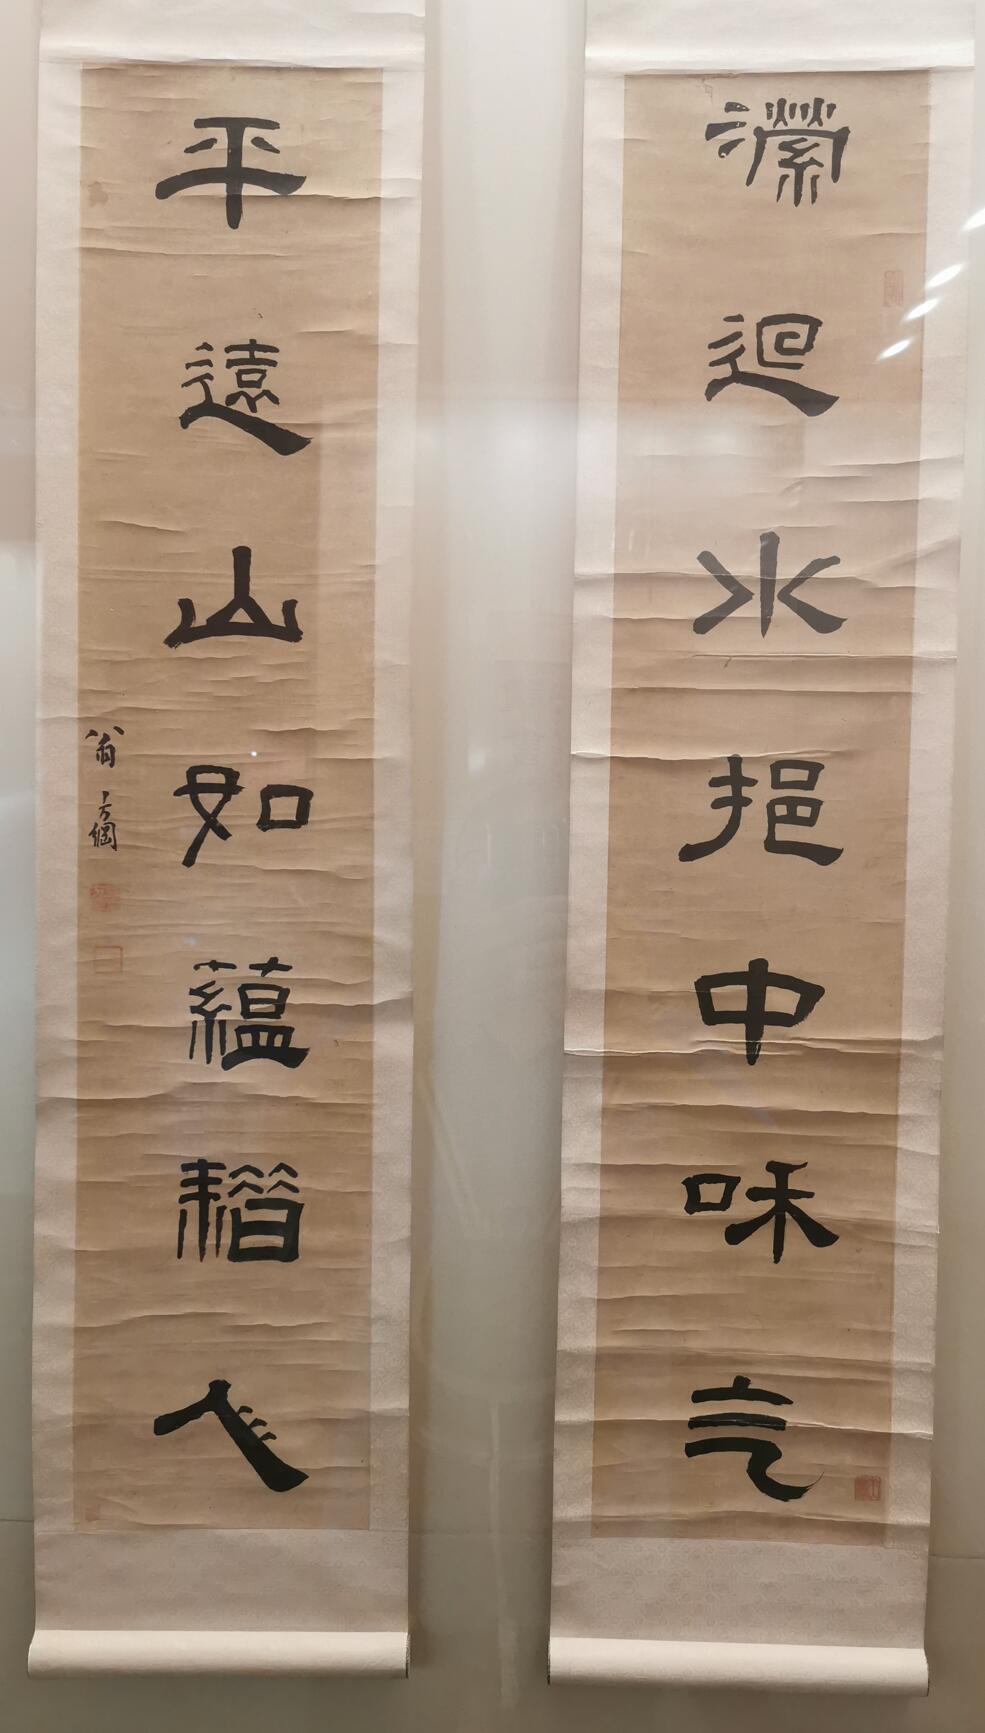 潆迴水挹中和气
平遠山如蘊藉人
翁方綱